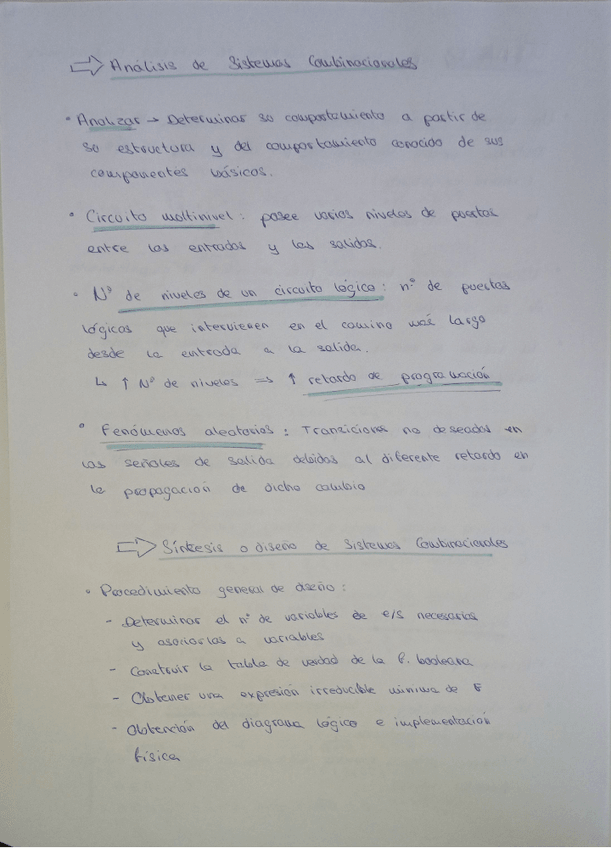 ⇒ Análisis de Sistemas Combinacionales
• Analizar → Determinar su comportamiento a partir de
su estructura y del comportamiento conocido de sus
componentes básicos.
• Circuito multinivel: posee varios niveles de puertas
entre las entradas y las salidas.
• Nº de niveles de un circuito lógico: nº de puertas
lógicas que intervienen en el camino más largo
desde la entrada a la salida.
↳ ↑ Nº de niveles ⇒ ↑ retardo de programación
• Fenómenos aleatorios: Transiciones no deseadas en
las señales de salida debidas al diferente retardo en
la propagación de dicho cambio
⇒ Síntesis o diseño de Sistemas Combinacionales
• Procedimiento general de diseño:
- Determinar el nº de variables de e/s necesarias
y asociarlas a variables
- Construir la tabla de verdad de la f. booleana
- Obtener una expresión irreducible mínima de F
- Obtención del diagrama lógico e implementación
física